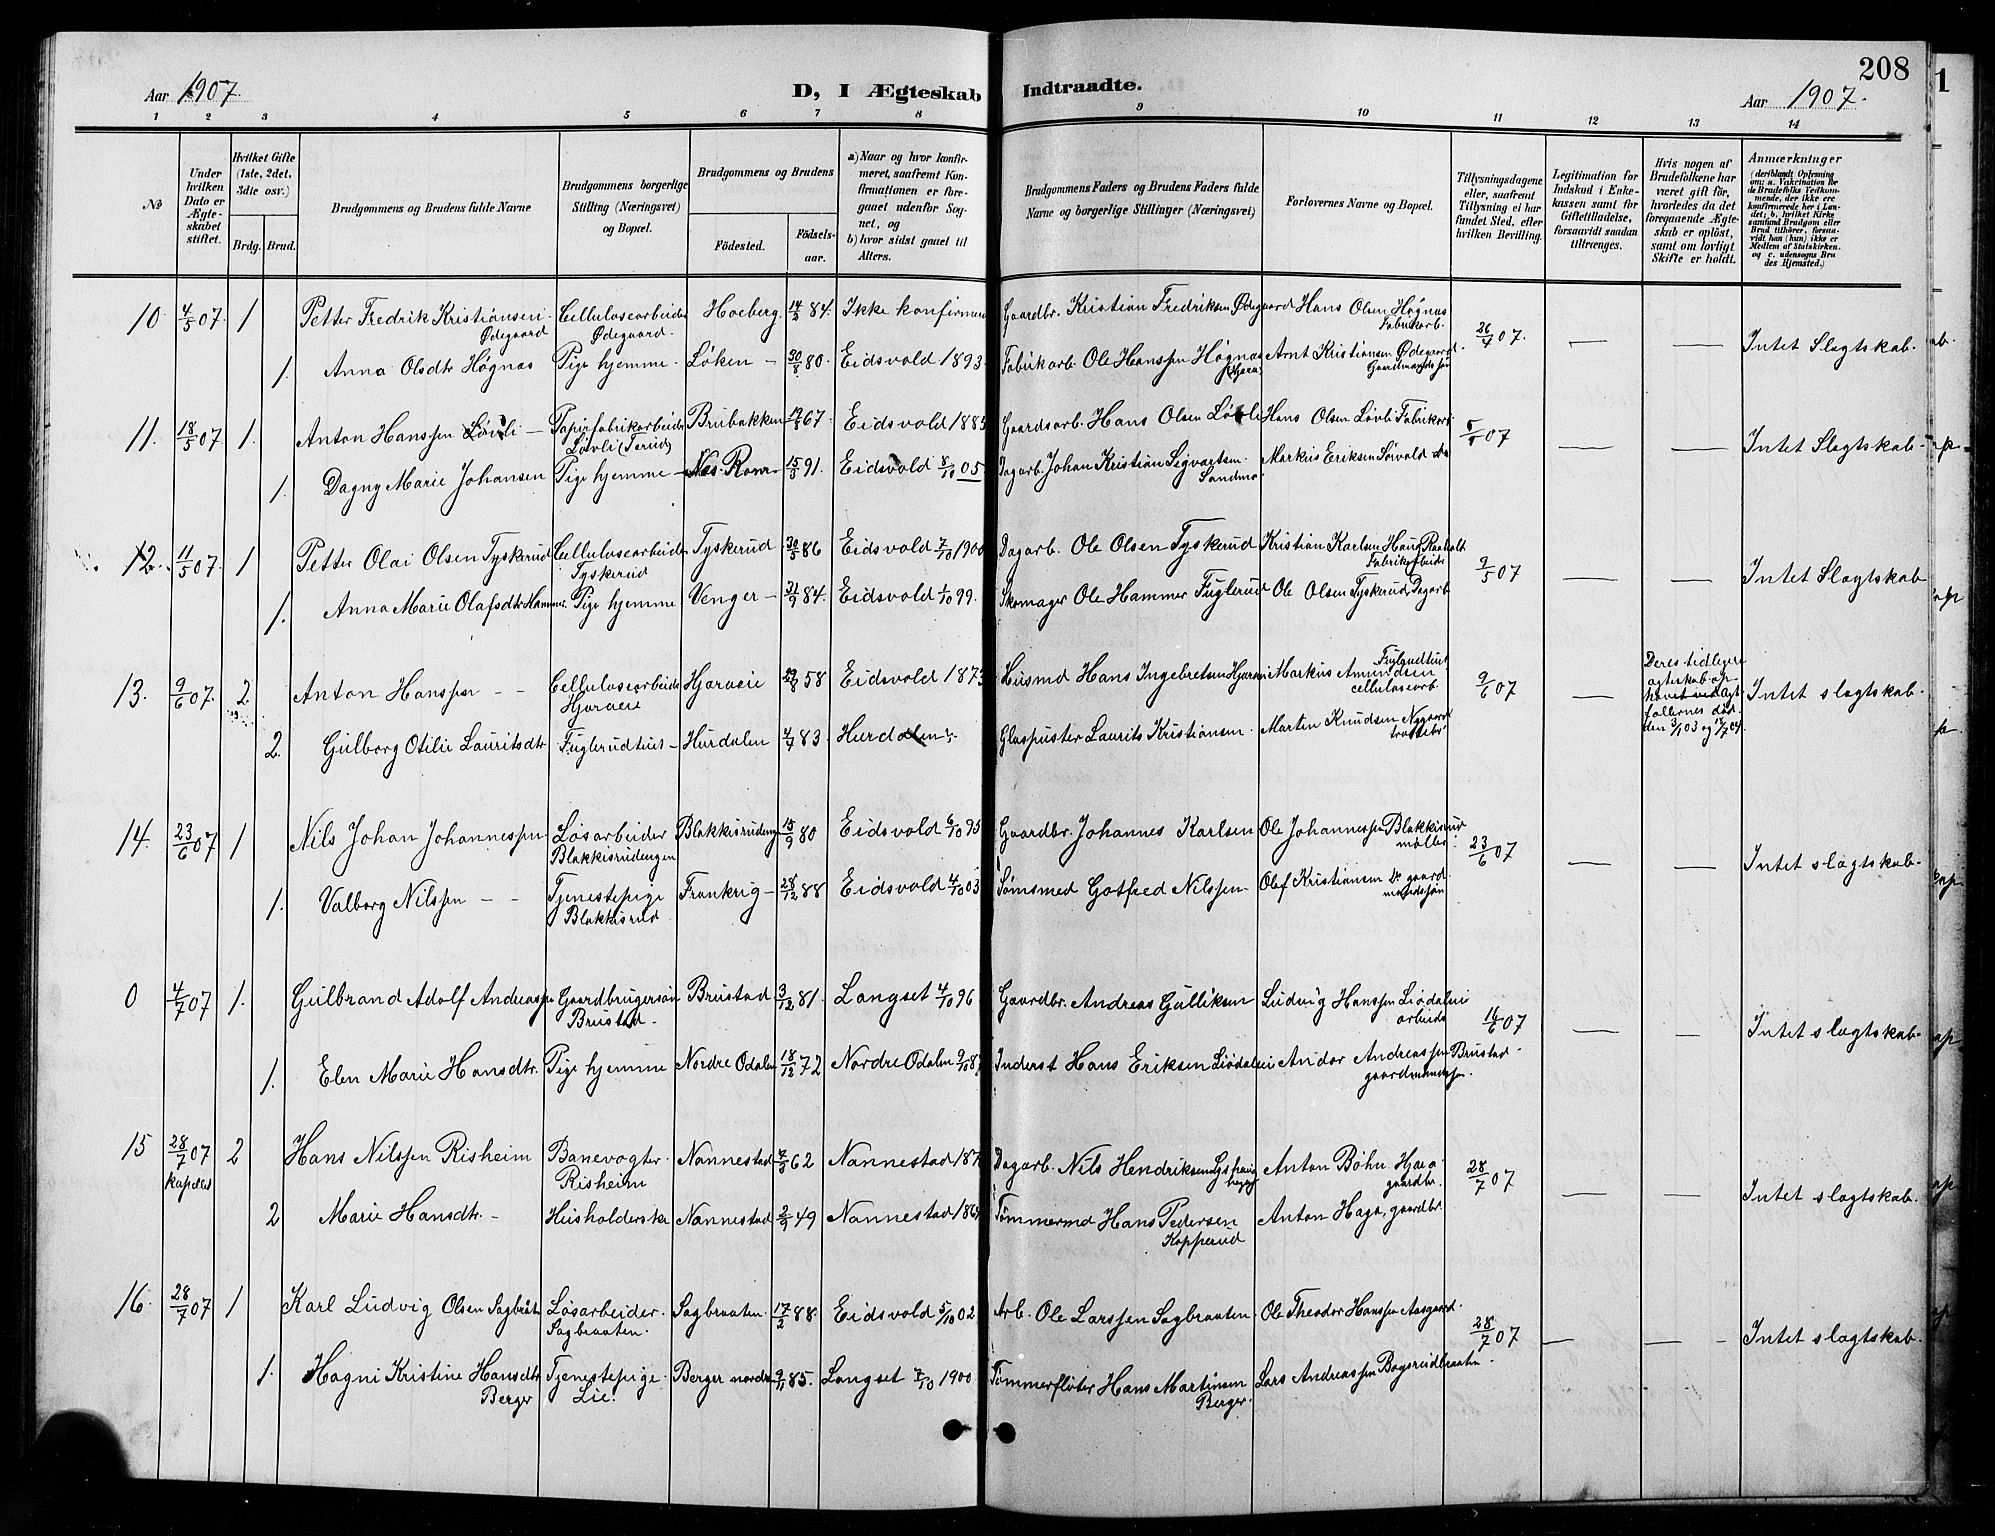 208
Aar 1907.
D, I Ægteskab Indtraadte.
Aar 1907.
1 2 3 4 5 6 7 8 9 10 11 12 13 14
No
Under hvilken Dato er Ægteskabet stiftet.
Hvilket Gifte (1ste, 2det, 3die osv.)
Brdg. Brud.
Brudgommens og Brudens fulde Navne
Brudgommens borgerlige Stilling (Næringsvei) og Bopæl.
Brudgommens og Brudens
Fødested.
Fødselsaar.
a) Naar og hvor konfirmeret, saafremt Konfirmationen er foregaaet udenfor Sognet, og
b) hvor sidst gaaet til Alters.
Brudgommens Faders og Brudens Faders fulde Navne og borgerlige Stillinger (Næringsvei)
Forlovernes Navne og Bopæl.
Tillysningsdagene eller, saafremt Tillysning ei har fundet Sted, efter hvilken Bevilling.
Legitimation for Indskud i Enkekassen samt for Giftetilladelse, forsaavidt saadan tiltrænges.
Hvis nogen af Brudefolkene har været gift før, hvorledes da det foregaaende Ægteskab er opløst, samt om lovligt Skifte er holdt.
Anmærkninger
(deriblandt Oplysning om: a. Vakcination for de Brudefolks Vedkommende, der ikke ere konfirmerede her i Landet; b. hvilket Kirkesamfund Brudgom eller Brud tilhører, forsaavidt han (hun) ikke er Medlem af Statskirken, og c. udensogns Brudes Hjemsted.)
10. 4/5 07. 1 Petter Fredrik Kristiansen Ødegaard Cellulosearbeider Ødegaard Hoeberg 14/2 84. Ikke konfirmeret Gaardbr. Kristian Fredriksen Ødegaard Hans Olsen Høgnas Fabrikarb. 26/4 07. — — Intet Slægtskab.
1. Anna Olsdtr Høgnas Pige hjemme Løken 30/8 80. Eidsvold 1893. Fabrikarb. Ole Hanssen Høgnas Arnt Kristiansen Ødegaard Gaardmandssøn
11. 18/5 07 1. Anton Hanssen Løvli Papirfabrikarbeider Løvli (Terud) Brubakken 67 Eidsvold 1883 Gaardsarb. Hans Olsen Løvli Hans Olsen Løvli Fabrikarb. 07 — — Intet Slægtskab.
1. Dagny Marie Johansen Pige hjemme Nes Rom. 91. Eidsvold 8/10 05. Dagarb. Johan Kristian Sigvartsen Sandmo Markus Eriksen Sørvald
12. 11/5 07. 1 Petter Olai Olsen Tyskerud Cellulosearbeider Tyskerud Tyskerud 30/5 86 Eidsvold 7/10 1900 Dagarb. Ole Olsen Tyskerud Kristian Karlsen Haug Raaholt Fabrikarbeider 9/5 07 — — Intet Slægtskab
1. Anna Marie Olafsdtr Hammer. Pige hjemme Venger 84. Eidsvold 1/10 99. Skomager Ole Hammer Fuglerud Ole Olsen Tyskerud, Dagarb
13. 9/6 07. 2 Anton Hanssen Cellulosearbeider Hjæraeie Hjæraeie 58 Eidsvold 1873 Husmd Hans Ingebretsen Hjæraeie Markus Amundsen Fuglerudtuet cellulosearb 9/6 07 — Deres tidligere ægteskab ophævet ved ægtefællernes død den 3/1 03 og 04. Intet slægtskab.
2. Gulborg Otilie Lauritsdtr Fuglerudtuet Hurdalen 4/7 83. Hurdalen Glaspuster Laurits Kristiansen Marten Knudsen Nygaard
14. 23/6 07 1 Nils Johan Johannessen Løsarbeider Blakkisrudengen Blakkisrudengen 15/9 80 Eidsvold 6/10 95 Gaardbr. Johannes Karlsen Ole Johannessen Blakkisrud møller 23/6 07 — — Intet slægtskab.
1. Valborg Nilssen Tjenestepige Blakkisrud Frankrig 28/12 88 Eidsvold 4/10 03 Sømsmed Gotfred Nilssen Olaf Kristiansen do gaardmandssøn
0 4/7 07 1. Gulbrand Adolf Andreassen Gaardbrugersøn Brustad Brustad 3/12 81. Langset 4/10 96 Gaardbr. Andreas Gulliksen Ludvig Hanssen Liødaleie arbeider 16/6 07 — — Intet slægtskab.
1. Elen Marie Hansdtr. Pige hjemme Nordre Odalen 18/12 72 Nordre Odalen 9/10 87 Inderst Hans Eriksen Liødaleie Andor Andreassen Brustad gaardmandssøn.
15 28/7 07 kapellet 2 Hans Nilssen Risheim Banevogter Risheim Nannestad 62 Nannestad 187 Dagarb. Nils Hendriksen Anton Bøhn Hjæra gaardbr. 28/7 07 — — Intet slægtskab.
2 Marie Hansdtr. Husholderske Nannestad 2/9 49 Nannestad 186 Tømmermd Hans Pedersen Kopperud Anton Haga, gaardbr.
16. 28/7 07 1 Karl Ludvig Olsen Sagbråten Løsarbeider. Sagbraaten. Sagbraaten. 17/2 88. Eidsvold 5/10 02 Arb. Ole Larssen Sagbraaten Ole Theodor Hanssen Aasgaard. 28/7 07 — — Intet slægtskab.
1. Hagni Kristine Hansdtr Berger Tjenestepige Lie. Berger nordre 9/11 85. Langset 7/10 1900 Tømmerfløter Hans Martinsen Berger. Lars Andreassen Bogsrudbraaten